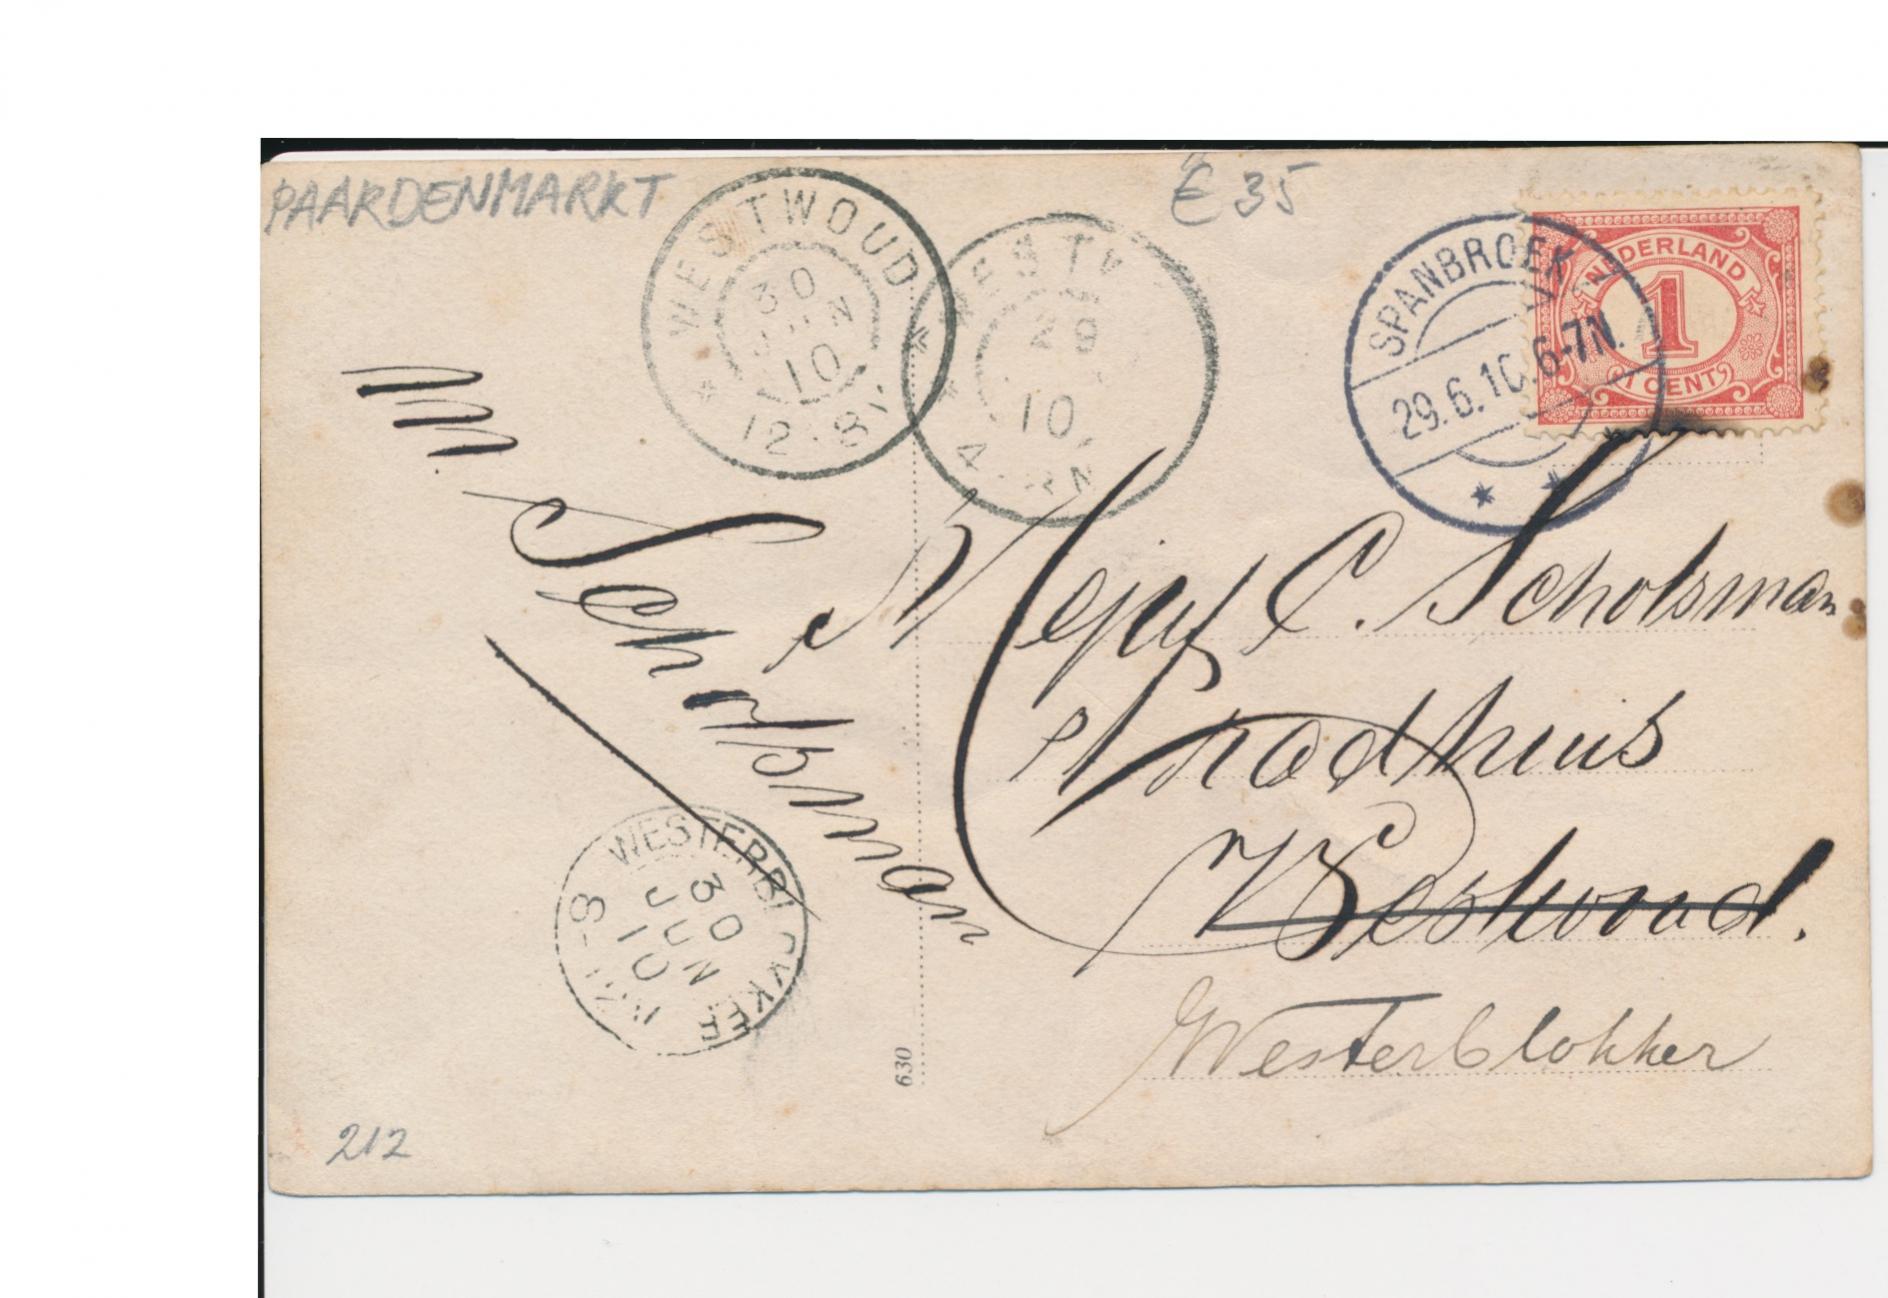 PAARDENMARKT
€ 35
WESTWOUD
30
JUN
10
12-8V
29
10
SPANBROEK
29.6.10.6-7N.
NEDERLAND
1
1 CENT
M. Scholsman
Mejuf C. Scholsman
Raadhuis
Westwoud.
Westerblokker
WESTERBLOKKER
30
JUN
10
630
212